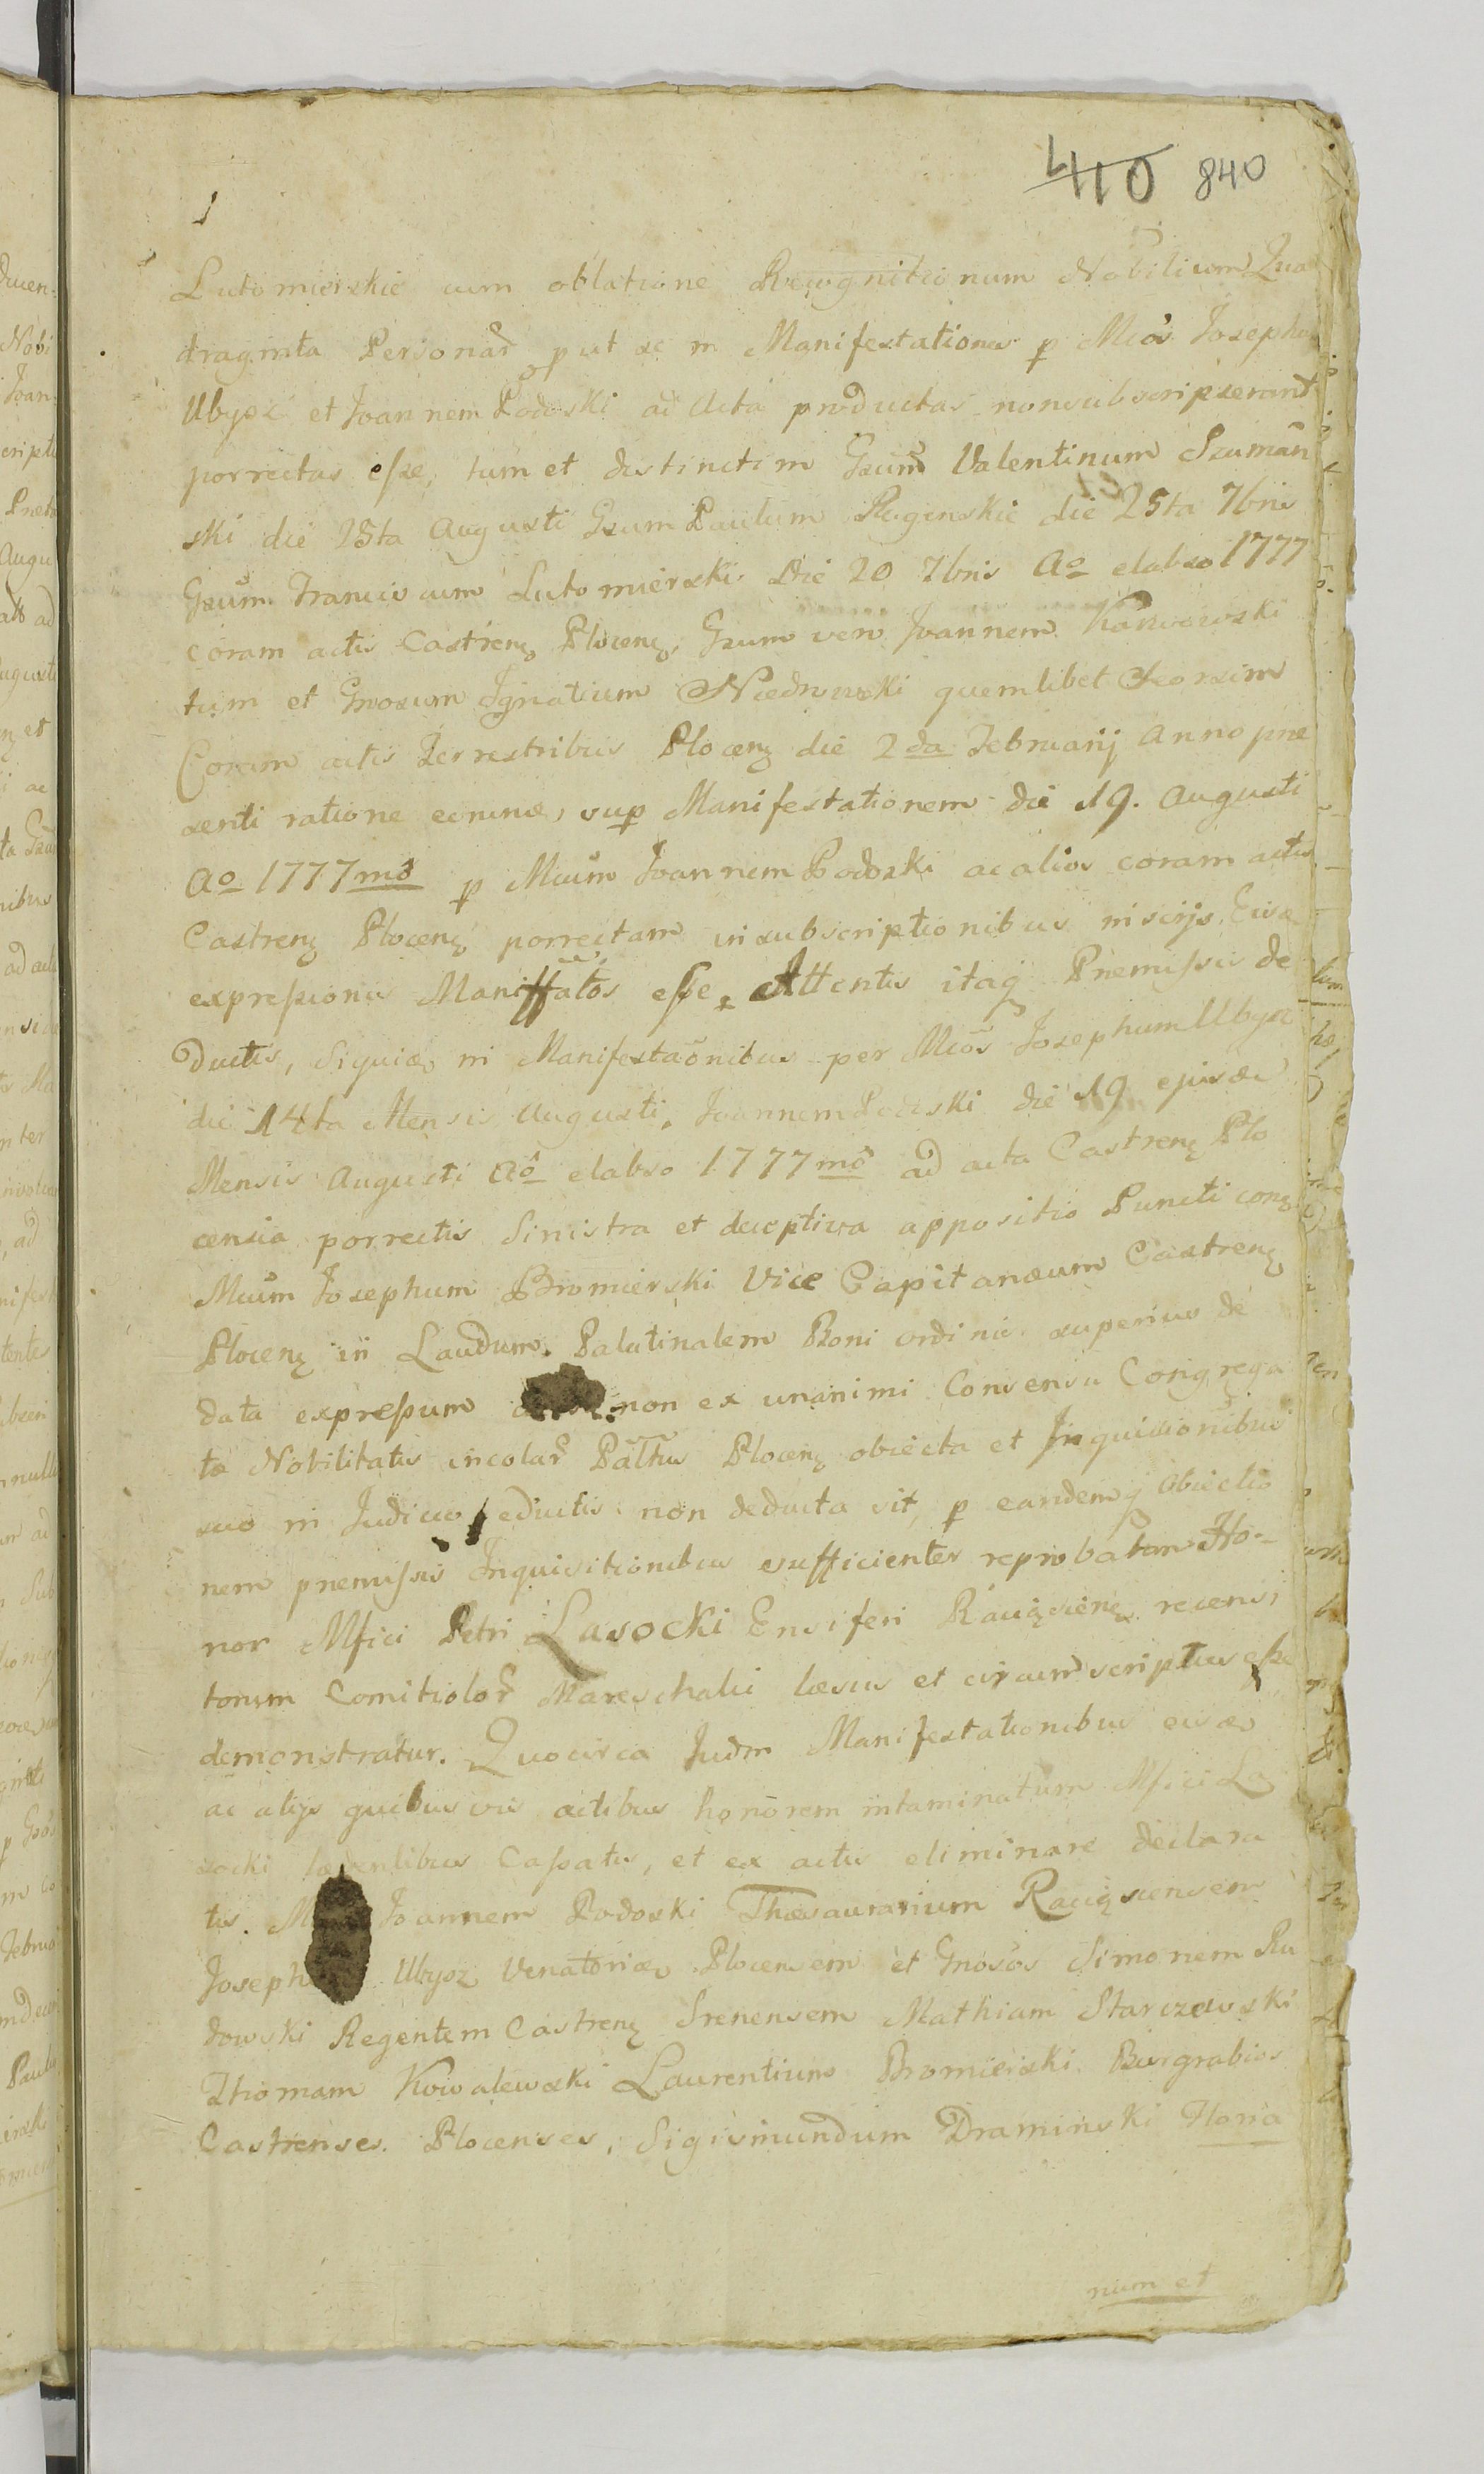 410 840
Lutomierskie cum oblatione Recognitionum Nobilium Qua
draginta Personar̃ put se in Manifestationes p Mcos Josephu
Ubysz et Joannem Podoski ad Acta productas nonsubscripserant
porrectas esse, tum et distinctim Gsum Valentinum Szuman
ski die 25ta Augusti Gsum Paulum Rugenskie die 25ta 7bris
Gsum Franciscum Lutomierskie Die 20 7bris Ao elabso 1777
coram actis Castrenȝ Plocenȝ, Gsum vero Joannem
tum et Gnosum Ignatium quemlibet seorsim
Coram actis Terrestribus Plocenȝ die 2da Februarij Anno prae
senti ratione earum, sup Manifestationem die 19. Augusti
Ao 1777mo p Mcum Joannem Podoski ac alios coram actis
Castrenȝ Plocenȝ porrectam in subscriptionibus niscijs, Eisq
expressionis Maniffatos esse. Attentis itaq Praemissis de
ductis, Siquidē in Manifestaõnibus per Mcos Josephum Ubysz
die 14ta Mensis Augusti, Joannem Podoski die 19 ejusdē
Mensis Augusti Ao elabso 1777mo ad acta Castrenȝ Plo
censia porrectis Sinistra et deceptiva appositio Puncti conȝ
Mcum Josephum Bromierski Vice Capitanaeum Castrenȝ
Plocenȝ in Laudum Palatinalem Boni ordinis superius de
data expressum non ex unanimi Consensu Congrega
tæ Nobilitatis incolar̃ Pałtus Plocenȝ obiecta et Inquisionibus
suo in Judicio eductis non deducta sit, p eandemq Obiectio
nem praemissis Inquisitionibus sufficienter reprobatam Ho-
nor Mfici Petri Lasocki Ensiferi Raciązienȝ recensi
torum Comitiolor̃ Mareschalci læsus et circumscriptus esse
demonstratur. Quocirca Judm Manifestationibus eisdē
ac alijs quibusvis actibus honorem intaminatum Mfici La
socki lædentibus Cassatis, et ex actis eliminare declara
tis. Joannem Podoski Thesaurarium Raciąscensem
Joseph Ubysz Venatoridē Plocensem et Gnosos Simonem Ru
dowski Regentem Castrenȝ Srenensem Mathiam Starczewski
Thomam Kowalewski Laurentium Bromierski Burgrabios
Castrenses Plocenses, Sigismundum Draminski Floria
num et